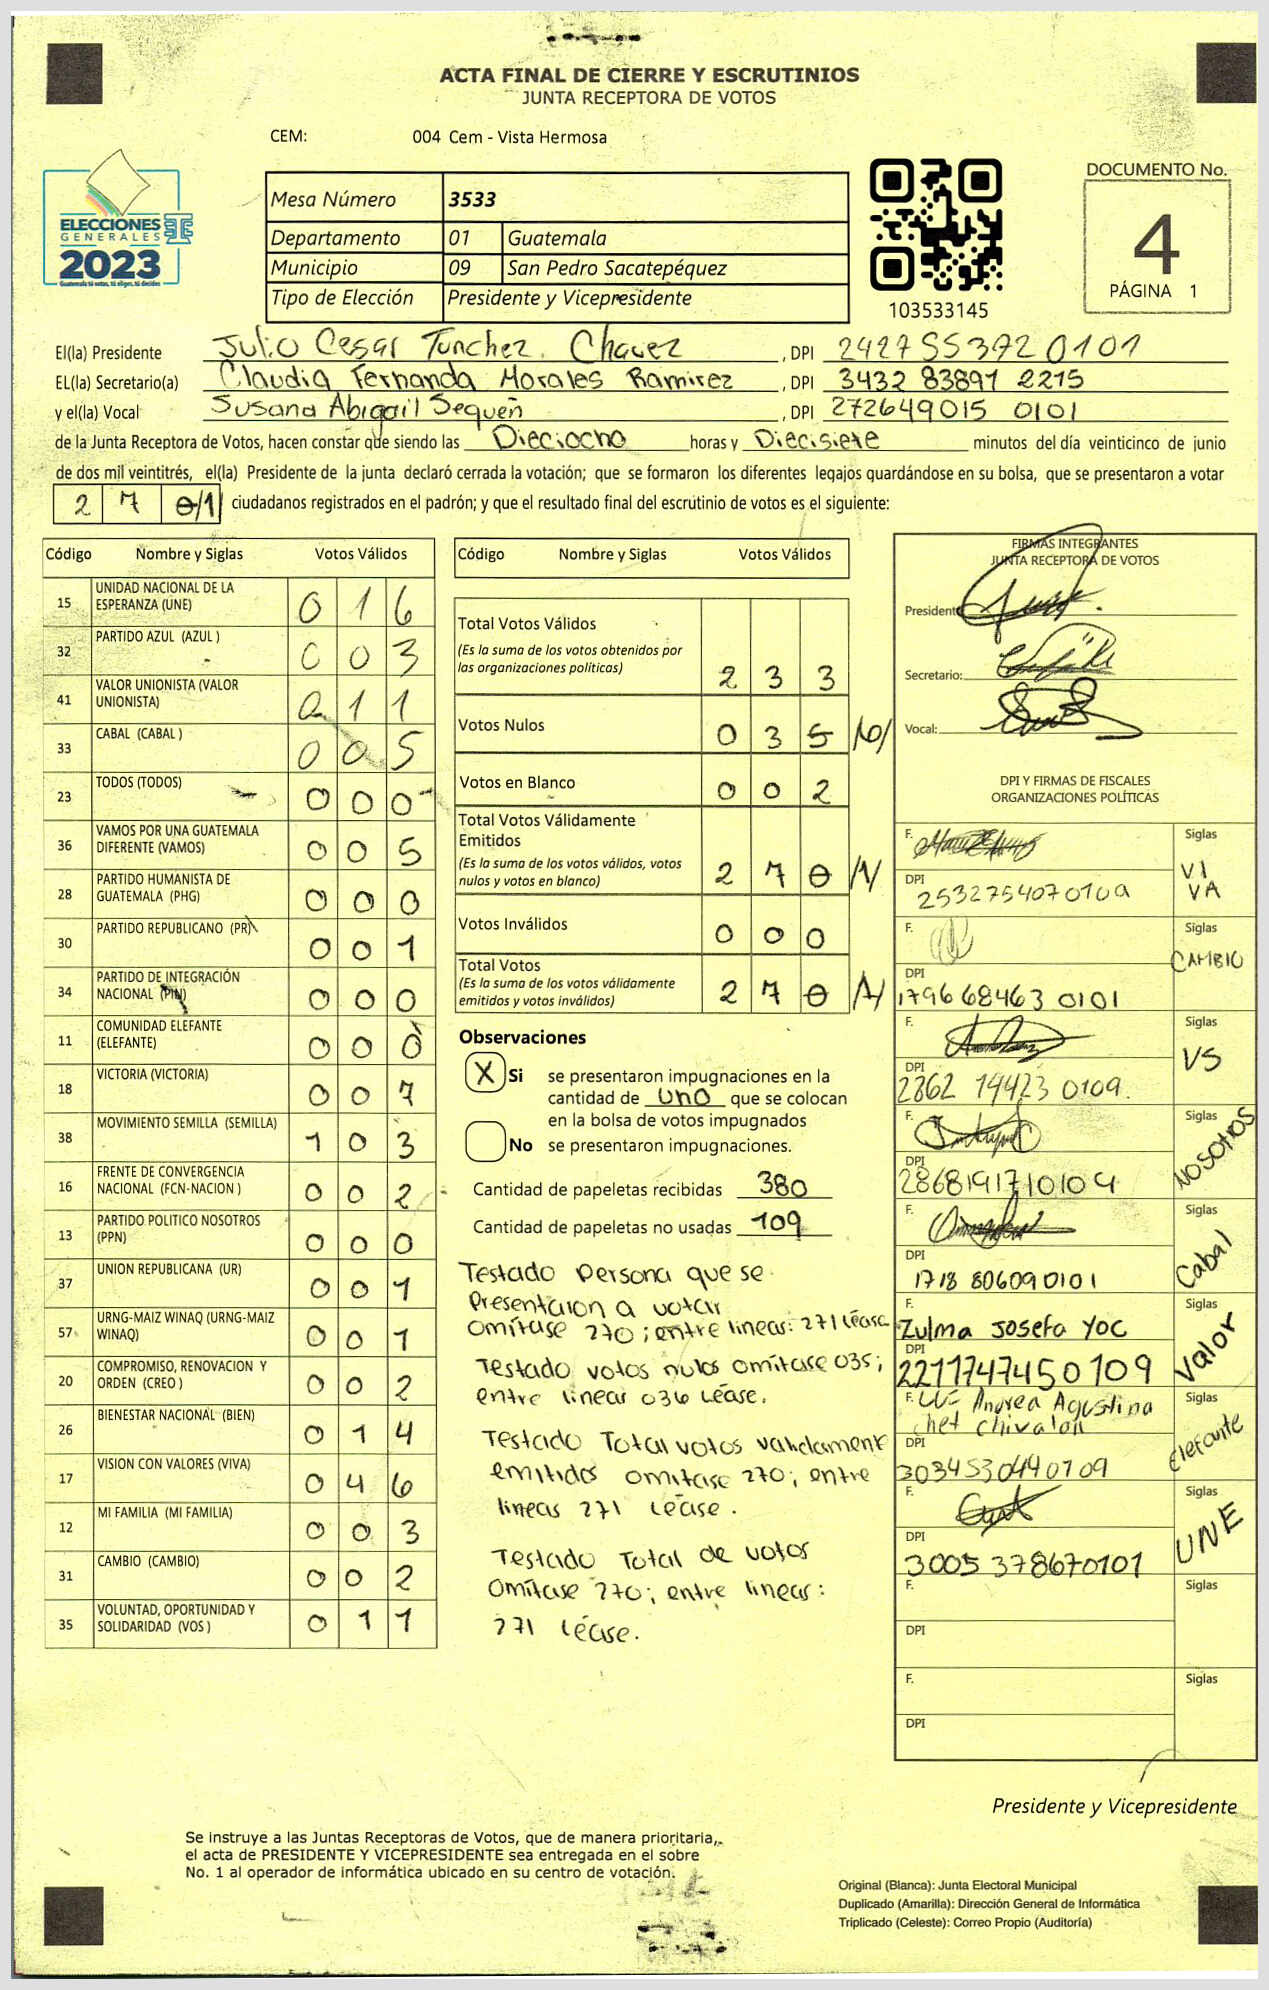 ACTA FINAL DE CIERRE Y ESCRUTINIOS
JUNTA RECEPTORA DE VOTOS
CEM: 004 Cem - Vista Hermosa
ELECCIONES
GENERALES
2023
Guatemala tú votas, tú eliges, tú decides
Mesa Número 3533
Departamento 01 Guatemala
Municipio 09 San Pedro Sacatepéquez
Tipo de Elección Presidente y Vicepresidente
103533145
DOCUMENTO No.
4
PÁGINA 1
El(la) Presidente Julio Cesar Tunchez Chavez , DPI 2427 55372 0101
EL(la) Secretario(a) Claudia Fernanda Morales Ramirez , DPI 3432 83891 2215
y el(la) Vocal Susana Abigail Sequen , DPI 272649015 0101
de la Junta Receptora de Votos, hacen constar que siendo las Dieciocho horas y Diecisiete minutos del día veinticinco de junio
de dos mil veintitrés, el(la) Presidente de la junta declaró cerrada la votación; que se formaron los diferentes legajos quardándose en su bolsa, que se presentaron a votar
2 7 0/1 ciudadanos registrados en el padrón; y que el resultado final del escrutinio de votos es el siguiente:
Código Nombre y Siglas Votos Válidos
15 UNIDAD NACIONAL DE LA ESPERANZA (UNE) 0 1 6
32 PARTIDO AZUL (AZUL ) 0 0 3
41 VALOR UNIONISTA (VALOR UNIONISTA) 0 1 1
33 CABAL (CABAL ) 0 0 5
23 TODOS (TODOS) 0 0 0
36 VAMOS POR UNA GUATEMALA DIFERENTE (VAMOS) 0 0 5
28 PARTIDO HUMANISTA DE GUATEMALA (PHG) 0 0 0
30 PARTIDO REPUBLICANO (PR) 0 0 1
34 PARTIDO DE INTEGRACIÓN NACIONAL (PIN) 0 0 0
11 COMUNIDAD ELEFANTE (ELEFANTE) 0 0 0
18 VICTORIA (VICTORIA) 0 0 7
38 MOVIMIENTO SEMILLA (SEMILLA) 1 0 3
16 FRENTE DE CONVERGENCIA NACIONAL (FCN-NACION ) 0 0 2
13 PARTIDO POLITICO NOSOTROS (PPN) 0 0 0
37 UNION REPUBLICANA (UR) 0 0 1
57 URNG-MAIZ WINAQ (URNG-MAIZ WINAQ) 0 0 1
20 COMPROMISO, RENOVACION Y ORDEN (CREO ) 0 0 2
26 BIENESTAR NACIONAL (BIEN) 0 1 4
17 VISION CON VALORES (VIVA) 0 4 6
12 MI FAMILIA (MI FAMILIA) 0 0 3
31 CAMBIO (CAMBIO) 0 0 2
35 VOLUNTAD, OPORTUNIDAD Y SOLIDARIDAD (VOS ) 0 1 1
Código Nombre y Siglas Votos Válidos
Total Votos Válidos
(Es la suma de los votos obtenidos por
las organizaciones políticas) 2 3 3
Votos Nulos 0 3 5 /6/
Votos en Blanco 0 0 2
Total Votos Válidamente
Emitidos
(Es la suma de los votos válidos, votos
nulos y votos en blanco) 2 7 0 /1/
Votos Inválidos 0 0 0
Total Votos
(Es la suma de los votos válidamente
emitidos y votos inválidos) 2 7 0 /1/
Observaciones
X Si se presentaron impugnaciones en la
cantidad de uno que se colocan
en la bolsa de votos impugnados
No se presentaron impugnaciones.
Cantidad de papeletas recibidas 380
Cantidad de papeletas no usadas 109
Testado Persona que se
Presentaron a votar
omítase 270; entre lineas: 271 léase
Testado votos nulos omítase 035;
entre lineas 036 Léase.
Testado Total votos validamente
emitidos omitase 270; entre
lineas 271 Léase.
Testado Total de votos
omítase 270; entre lineas:
271 Léase.
FIRMAS INTEGRANTES
JUNTA RECEPTORA DE VOTOS
Presidente:
Secretario:
Vocal:
DPI Y FIRMAS DE FISCALES
ORGANIZACIONES POLÍTICAS
F. Siglas
VI
VA
DPI 2532754070109
F. Siglas
CAMBIO
DPI
1796 68463 0101
F. Siglas
VS
DPI
2862 14423 0109.
F. Siglas
NOSOTROS
DPI
2868191710109
F. Siglas
Cabal
DPI
1718 80609 0101
F. Siglas
Zulma Josefa Yoc
Valor
DPI
2211747450109
F. Andrea Agustina Siglas
chet Chivalan
Elefante
DPI
3034530440109
F. Siglas
UNE
DPI
3005 378670101
F. Siglas
DPI
F. Siglas
DPI
Presidente y Vicepresidente
Se instruye a las Juntas Receptoras de Votos, que de manera prioritaria,
el acta de PRESIDENTE Y VICEPRESIDENTE sea entregada en el sobre
No. 1 al operador de informática ubicado en su centro de votación.
Original (Blanca): Junta Electoral Municipal
Duplicado (Amarilla): Dirección General de Informática
Triplicado (Celeste): Correo Propio (Auditoría)